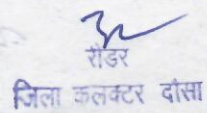 रीडर
जिला कलक्टर दौसा